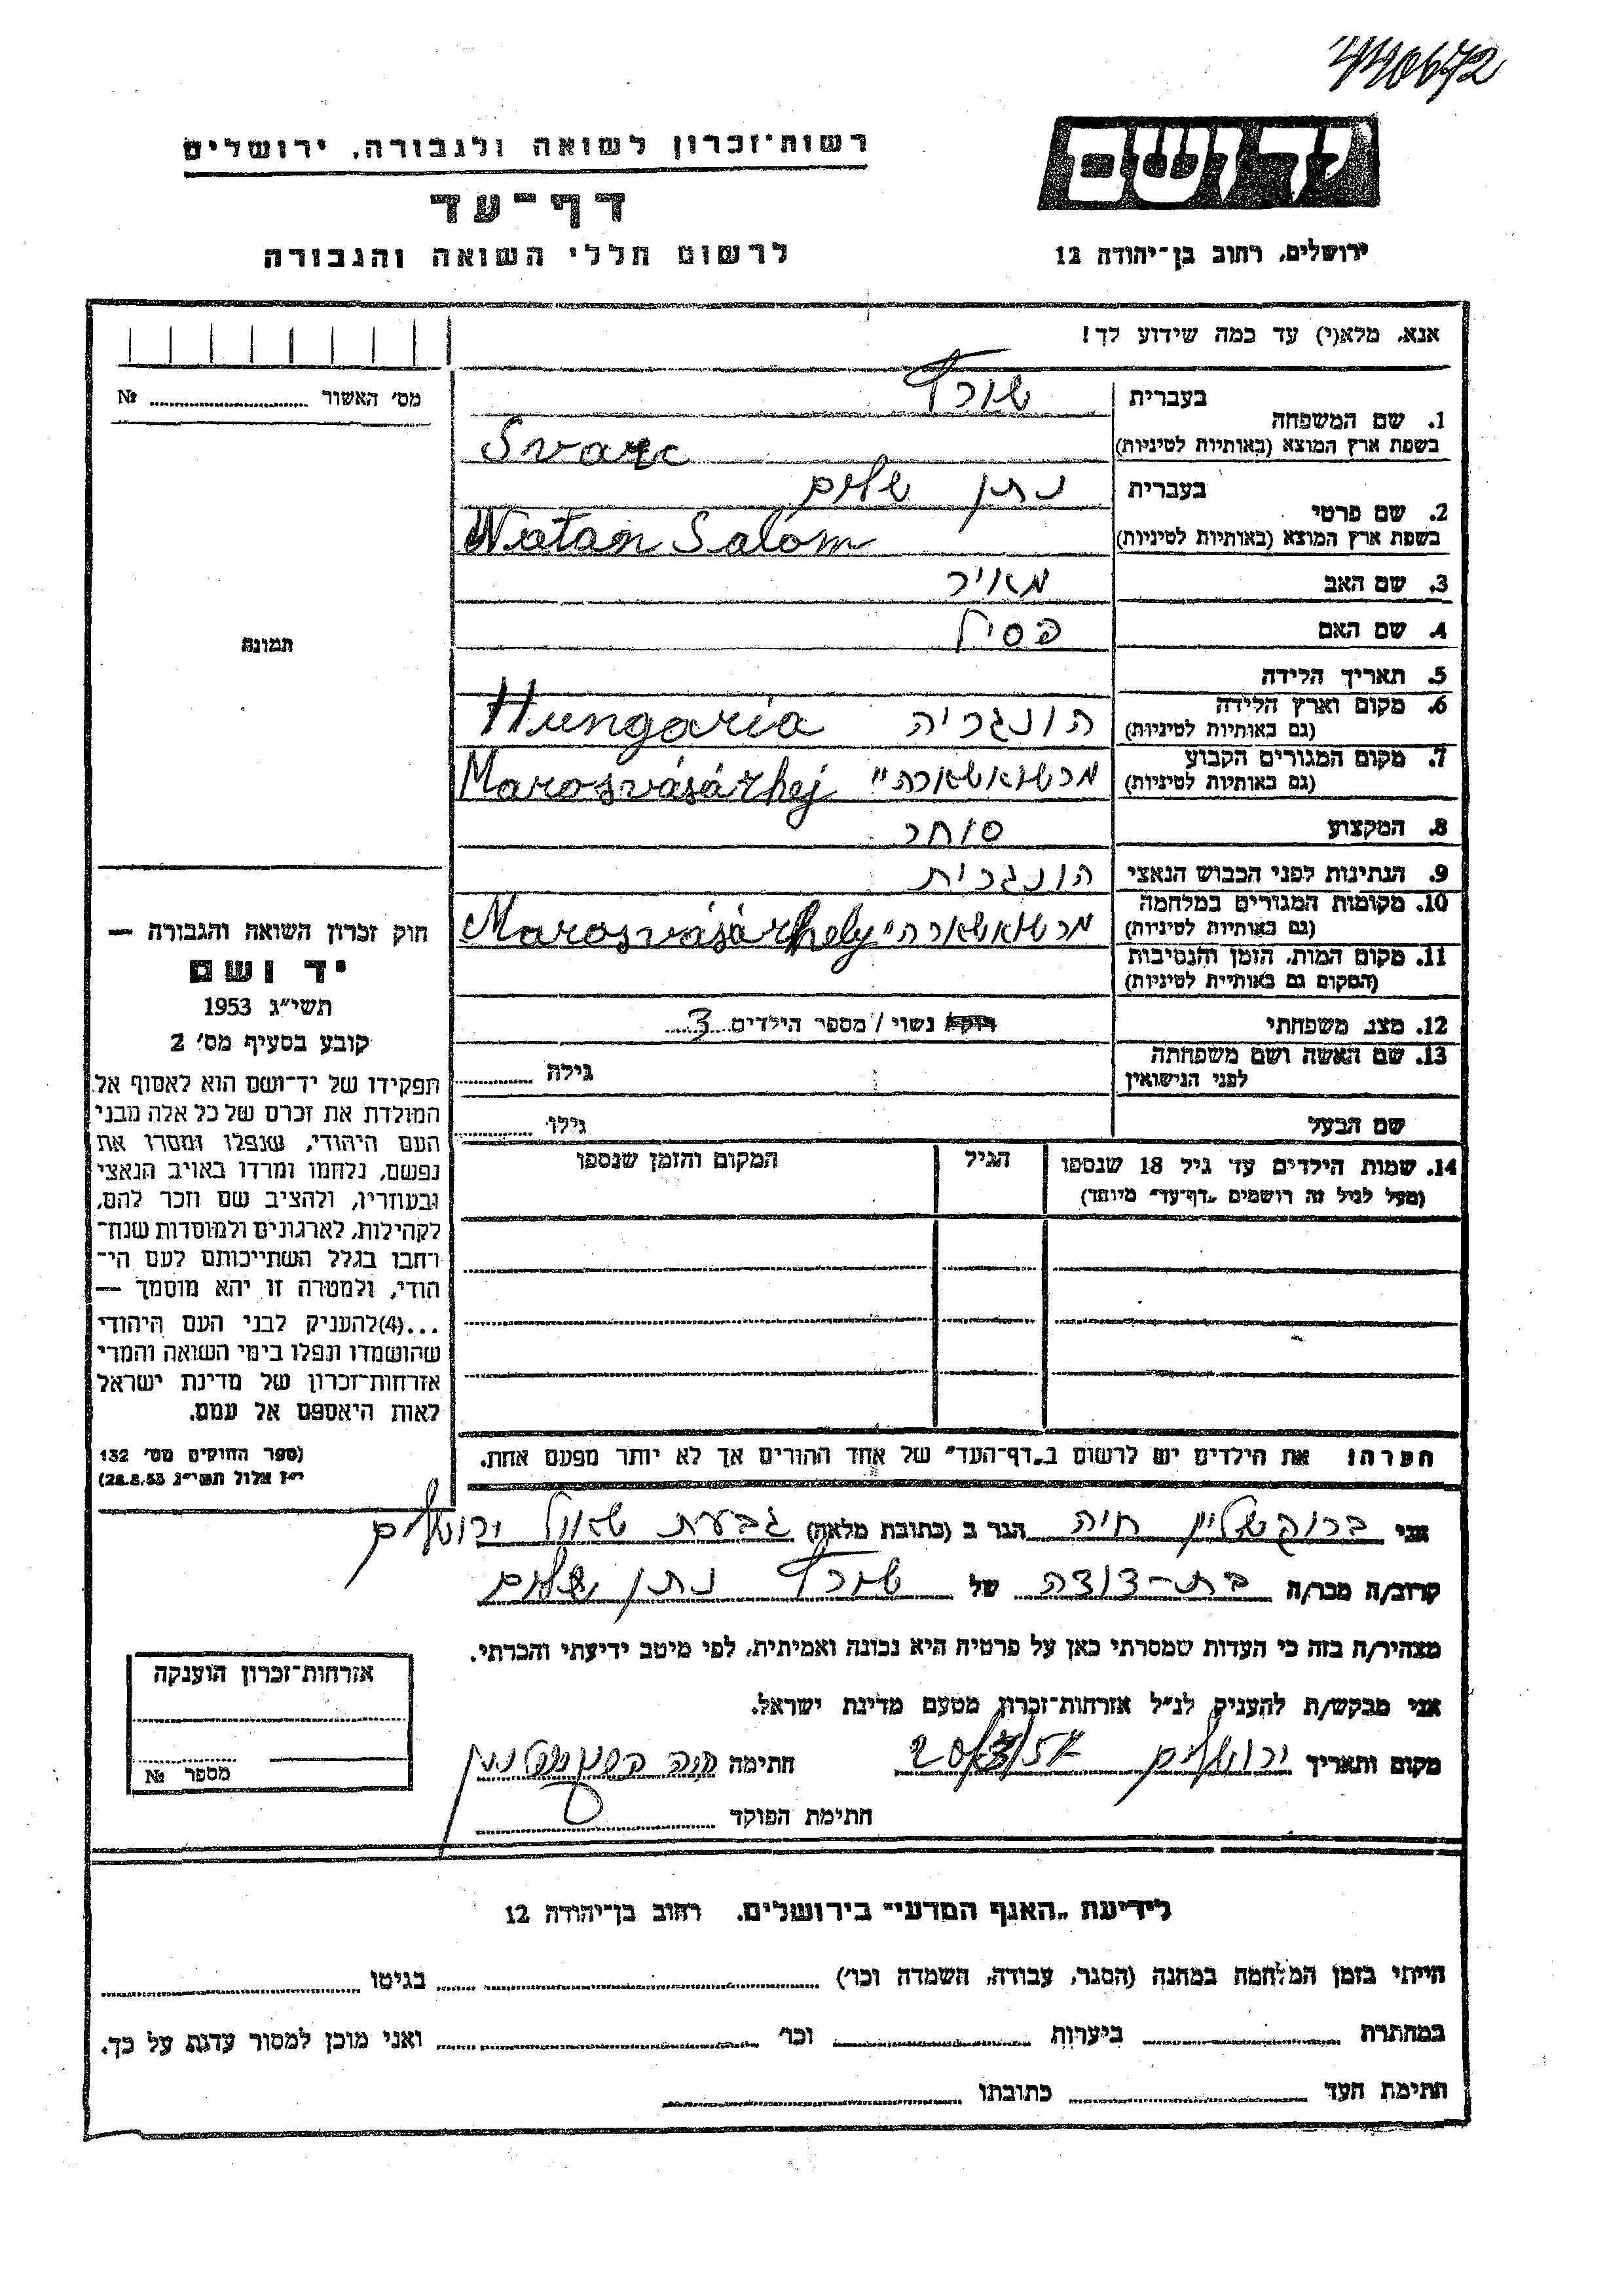 440672
רשות־זכרון לשואה ולגבורה, ירושלים
ידושם
דף־עד
לרשום חללי השואה והגבורה
ירושלים, רחוב בן־יהודה 12
אנא, מלא(י) עד כמה שידוע לך!
מס׳ האשור № 
1. שם המשפחה
בעברית שורץ
בשפת ארץ המוצא (באותיות לטיניות) Svarc
2. שם פרטי
בעברית נתן שלום
בשפת ארץ המוצא (באותיות לטיניות) Natan Salom
3. שם האב מאיר
4. שם האם פסיל
תמונה
5. תאריך הלידה
6. מקום וארץ הלידה הונגריה Hungaria
(גם באותיות לטיניות)
7. מקום המגורים הקבוע Marosvásárhej
(גם באותיות לטיניות)
8. המקצוע סוחר
9. הנתינות לפני הכבוש הנאצי הונגרית
10. מקומות המגורים במלחמה Marosvásárhely
(גם באותיות לטיניות)
11. מקום המות, הזמן והנסיבות
(המקום גם באותיות לטיניות)
12. מצב משפחתי רווק/ נשוי / מספר הילדים 3
13. שם האשה ושם משפחתה גילה
לפני הנישואין
שם הבעל גילו
14. שמות הילדים עד גיל 18 שנספו הגיל המקום והזמן שנספו
(מעל לגיל זה רושמים „דף־עד״ מיוחד)
חוק זכרון השואה והגבורה —
יד ושם
תשי״ג 1953
קובע בסעיף מס׳ 2
תפקידו של יד־ושם הוא לאסוף אל
המולדת את זכרם של כל אלה מבני
העם היהודי, שנפלו ומסרו את
נפשם, נלחמו ומרדו באויב הנאצי
ובעוזריו, ולהציב שם וזכר להם,
לקהילות, לארגונים ולמוסדות שנח־
רחבו בגלל השתייכותם לעם הי־
הודי, ולמטרה זו יהא מוסמך —
...(4)להעניק לבני העם היהודי
שהושמדו ונפלו בימי השואה והמרי
אזרחות־זכרון של מדינת ישראל
לאות היאספם אל עמם.
(ספר החוקים מס׳ 132
י״ז אלול תשי״ג 28.8.53)
הערה: את הילדים יש לרשום ב„דף־העד״ של אחד ההורים אך לא יותר מפעם אחת.
אני חיה הגר ב (כתובת מלאה) גבעת שאול ירושלים
קרוב/ה מכר/ה בת-דודה של שורץ נתן שלום
מצהיר/ה בזה כי העדות שמסרתי כאן על פרטיה היא נכונה ואמיתית, לפי מיטב ידיעתי והכרתי.
אני מבקש/ת להעניק לנ״ל אזרחות־זכרון מטעם מדינת ישראל.
מקום ותאריך ירושלים חתימה חיה
חתימת הפוקד
אזרחות־זכרון הוענקה
מספר №
לידיעת „האגף המדעי״ בירושלים, רחוב בן־יהודה 12
הייתי בזמן המלחמה במחנה (הסגר, עבודה, השמדה וכו׳) בגיטו
במחתרת ביערות וכו׳ ואני מוכן למסור עדות על כך.
חתימת העד כתובתו